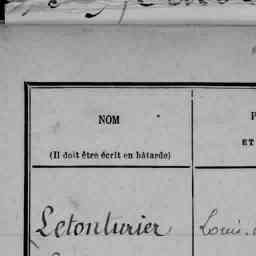 NOM
(Il doit être écrit en bâtarde)
ET
Letonturier
Louis